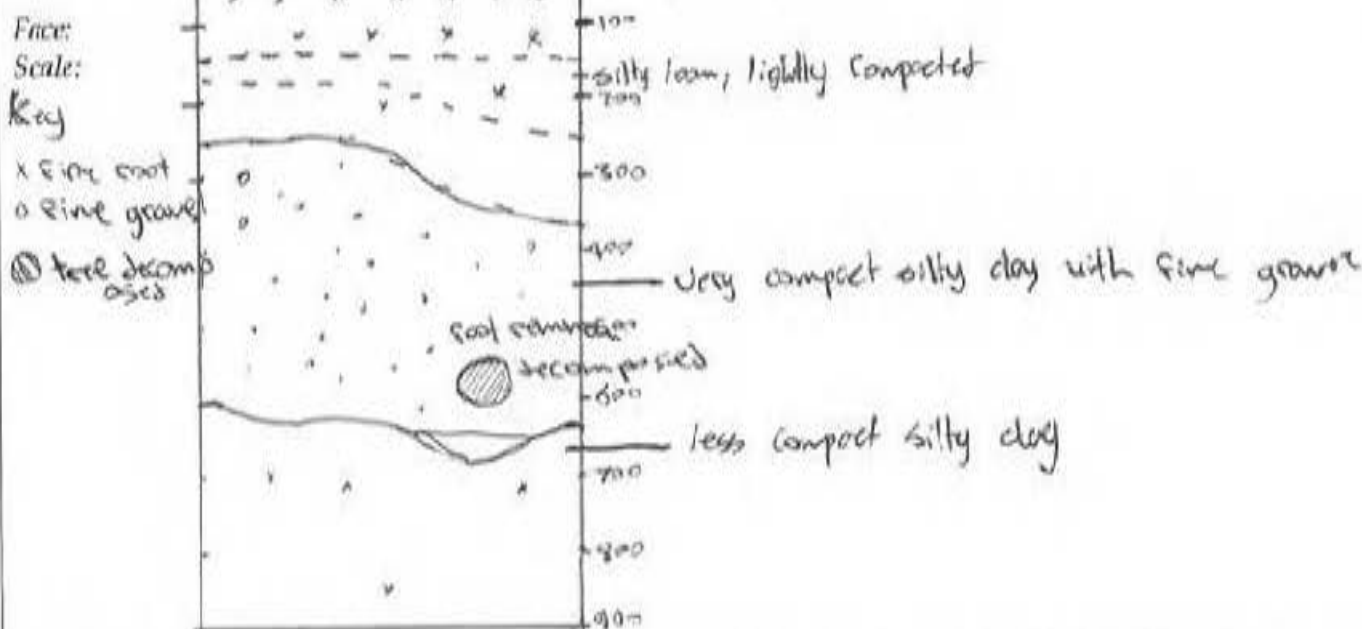 Face:
Scale:
Key
x fine root
o fine gravel
tree decomp
osed
100
silty loam, lightly compacted
200
300
400
very compact silty clay with fine gravel
root
decomposed
600
less compact silty clay
700
800
900